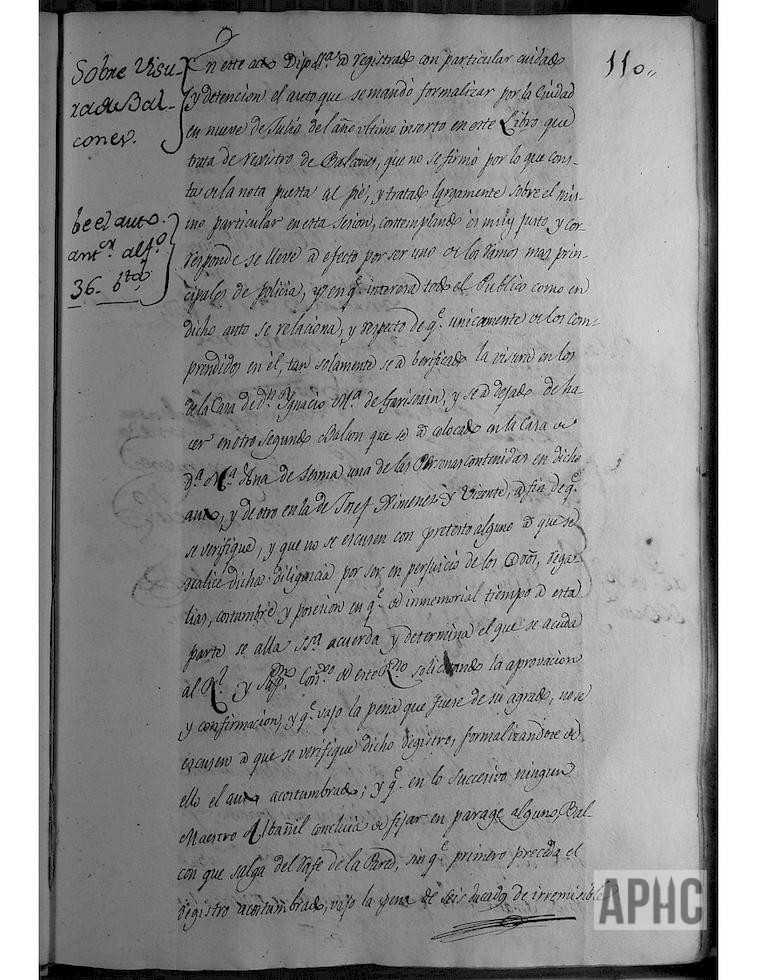 110,,
Sobre Visu-
ra de Bal-
cones.
En este acto Dip.n S.a a registrado con particular cuidado
y detencion el auto que se mandó formalizar por la Ciudad
en nueve de Julio del año ultimo inserto en este Libro que
trata de rexistro de Balcones, que no se firmó por lo que cons-
ta de la nota puesta al pie, y tratado largamente sobre el mis-
be el auto.
ant.or al f.o
36. b.to
mo particular en esta sesion, contemplando es muy justo, y cor-
responde se lleve a efecto por ser uno de los Ramos mas prin-
cipales de policia, y en q.e interesa todo el Publico como en
dicho auto se relaciona, y respecto de q.e unicamente de los com-
prendidos en él, tan solamente se a berificado la visura en los
de la Casa de d.n Ygnacio M.a de Garisoain, y se a dejado de ha-
cer en otro segundo Balcon que se a colocado en la Casa de
d.a M.a Ana de Serma una de las Personas contenidas en dicho
auto, y de otro en la de Josef Ximenez y Vizente, a fin de q.e
se verifique, y que no se escusen con pretesto alguno a que se
realice dicha diligencia por ser en perjuicio de los dros, rega-
lias, costumbre y posesion en q.e de inmemorial tiempo a esta
parte se alla S.Sa acuerda y determina el que se acuda
al R.l y Sup.mo Con.so de este R.no solicitando la aprovacion
y confirmacion, y q.e vajo la pena que fuere de su agrado, no se
escusen a que se verifique dicho registro, formalizandose de
ello el auto acostumbrado; y q.e en lo sucesivo ningun
Maestro Albañil concluia de fijar en parage alguno, Bal-
con que salga del Rafe de la Pared, sin q.e primero preceda el
registro acostumbrado, vajo la pena de seis ducados de irremisible
APHC